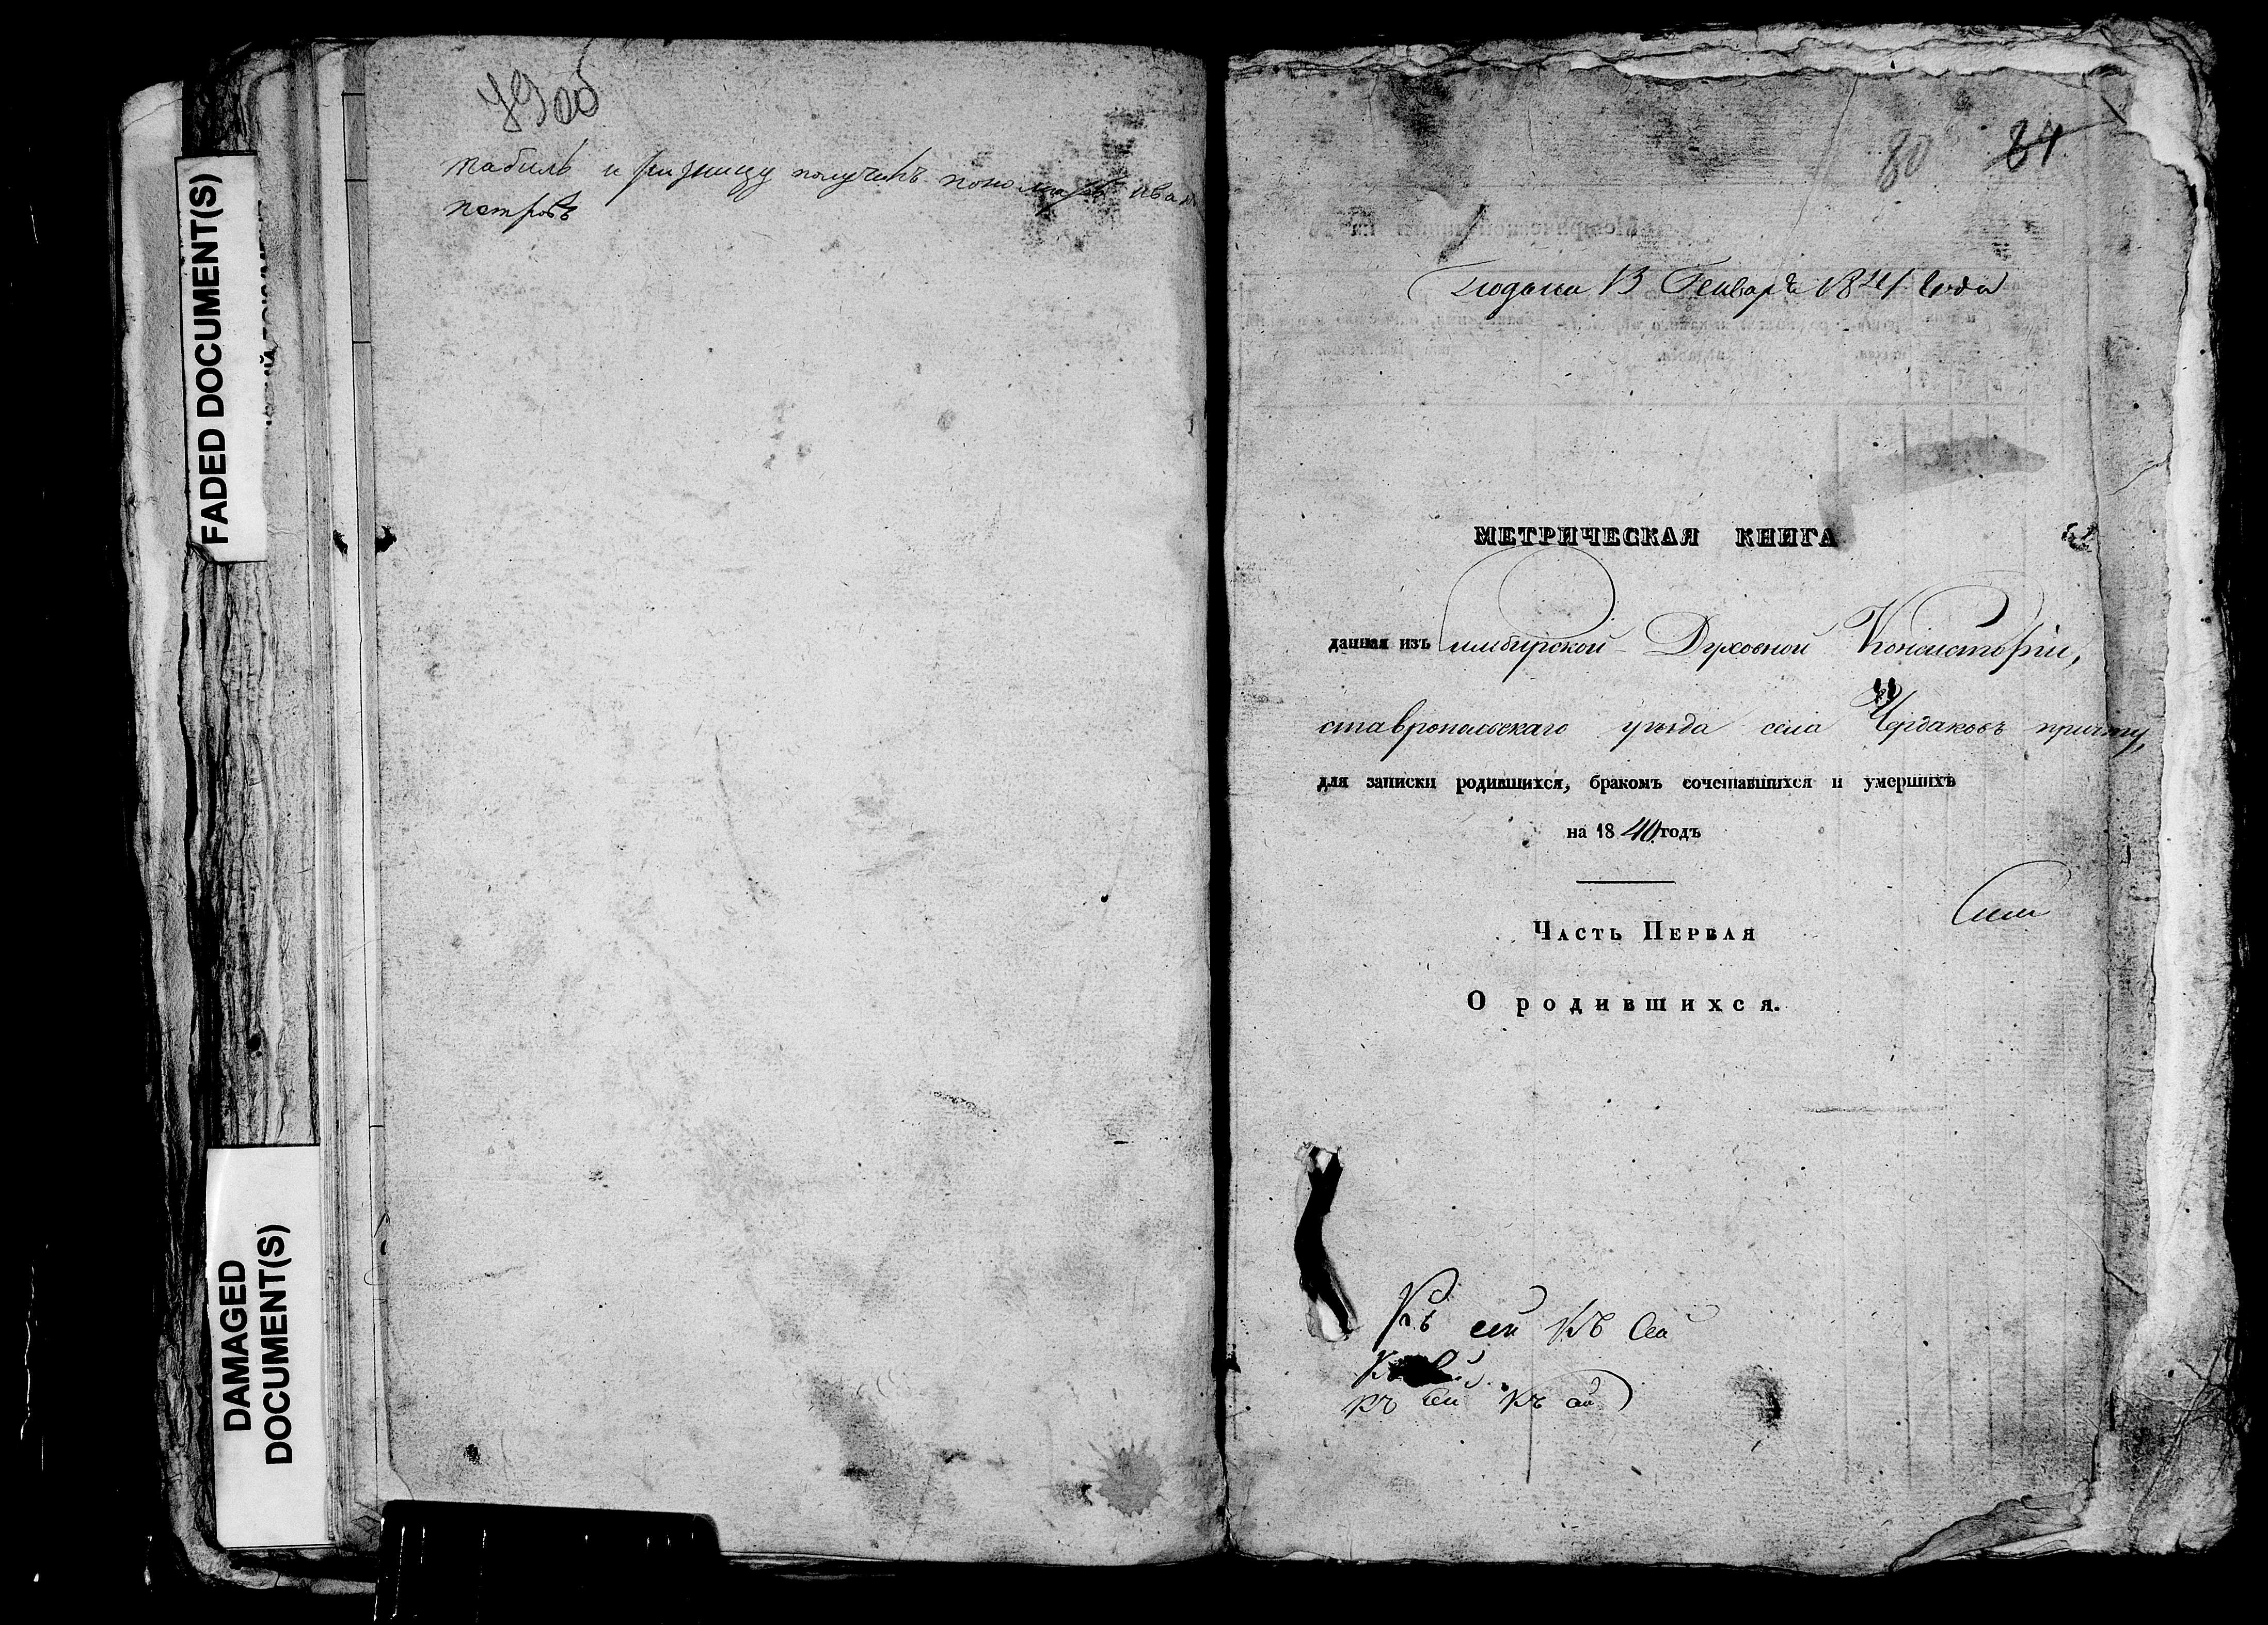 FADED DOCUMENT(S)
DAMAGED
DOCUMENT(S)
79об
табиль и ризницу получилъ пономарь иван
петровъ
80 81
Подана 13 Генваря 1841 года
МЕТРИЧЕСКАЯ КНИГА
данная изъ Симбирской Духовной Консисторіи,
ставропольскаго уѣзда села Чердаковъ причту,
для записки родившихся, бракомъ сочетавшихся и умершихъ
на 1840 годъ
Часть Первая
О родившихся.
Къ сей Къ Сей
къ сей къ сей